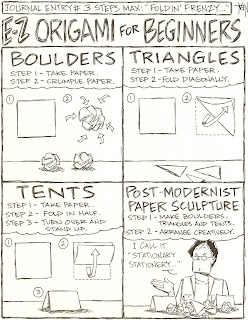 JOURNAL ENTRY # 3 STEPS MAX: "FOLDIN' FRENZY..."
E-Z ORIGAMI FOR BEGINNERS
BOULDERS
STEP 1 - TAKE PAPER.
STEP 2 - CRUMPLE PAPER.
1
2
TRIANGLES
STEP 1 - TAKE PAPER.
STEP 2 - FOLD DIAGONALLY.
1
2
TENTS
STEP 1 - TAKE PAPER.
STEP 2 - FOLD IN HALF.
STEP 3 - TURN OVER AND
STAND UP.
1
2
3
POST-MODERNIST
PAPER SCULPTURE
STEP 1 - MAKE BOULDERS,
TRIANGLES AND TENTS.
STEP 2 - ARRANGE CREATIVELY.
I CALL IT
"STATIONARY
STATIONERY."